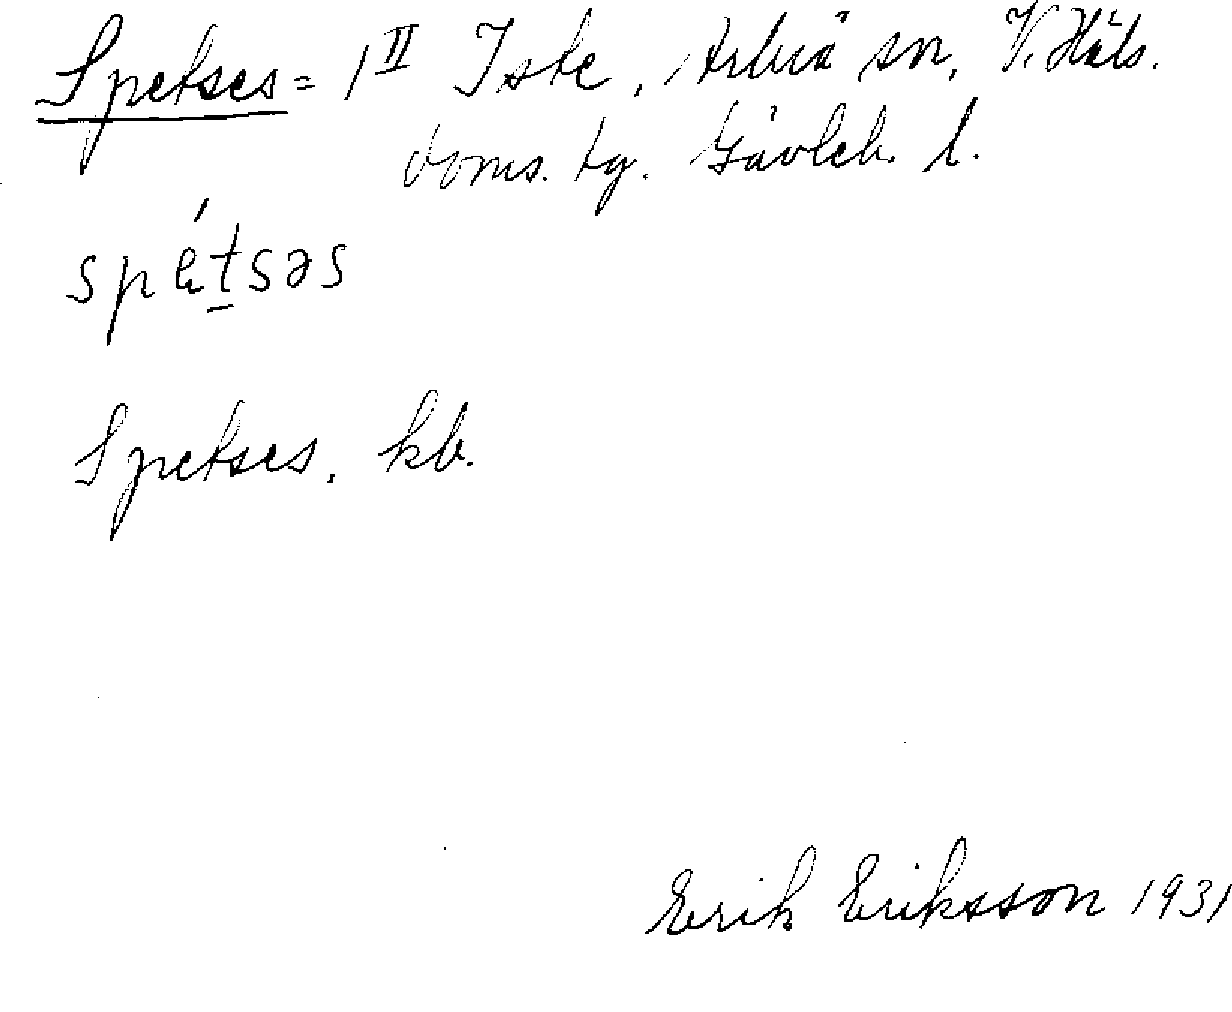 Spetses = 1 II Iste, Arbrå sn, V. Häls.
doms. tg. Gävleb. l.
spétsəs
Spetses, kb.
Erik Eriksson 1931